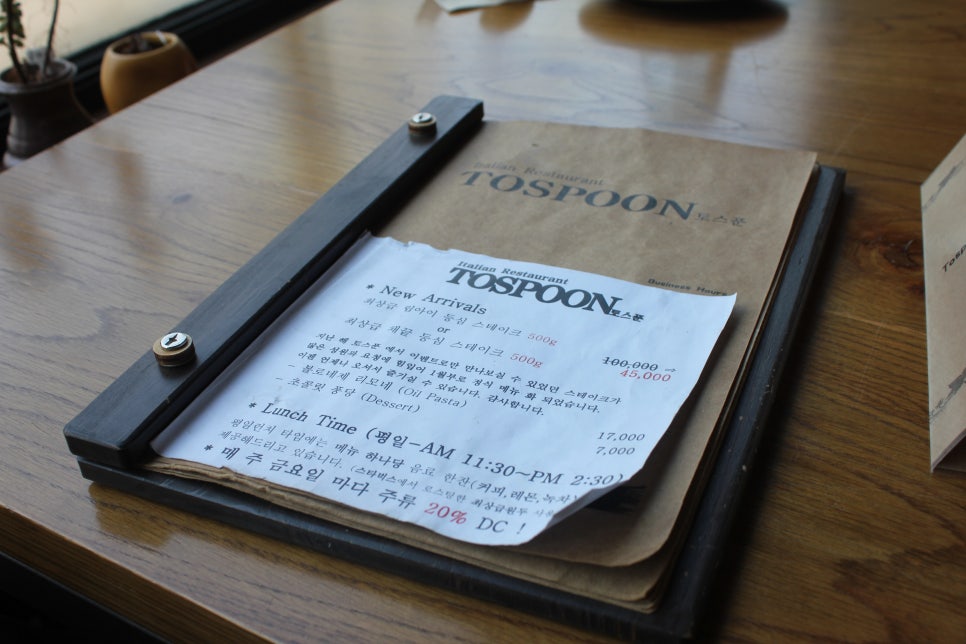 Italian Restaurant
TOSPOON 토스푼
Business Hours
Italian Restaurant
TOSPOON 토스푼
* New Arrivals
최상급 립아이 등심 스테이크 500g
or
최상급 채끝 등심 스테이크 500g
100,000 →
45,000
지난 해 토스푼 에서 이벤트로만 만나보실 수 있었던 스테이크가
많은 성원과 요청에 힘입어 1월부로 정식 메뉴 화 되었습니다.
이젠 언제나 오셔서 즐기실 수 있습니다. 감사합니다.
- 볼로네제 리모네 (Oil Pasta) 17,000
- 초콜릿 퐁당 (Dessert) 7,000
* Lunch Time (평일-AM 11:30~PM 2:30)
평일런치 타임에는 메뉴 하나당 음료 한잔(커피,레몬,녹차)
제공해드리고 있습니다. (스타벅스에서 로스팅한 최상급원두
* 매 주 금요일 마다 주류 20% DC !